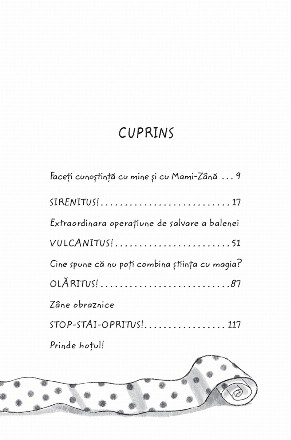 CUPRINS
Faceți cunoștință cu mine și cu Mami-Zână ... 9
SIRENITUS!.......................17
Extraordinara operațiune de salvare a balenei
VULCANITUS!.....................51
Cine spune că nu poți combina știința cu magia?
OLĂRITUS!........................87
Zâne obraznice
STOP-STAI-OPRITUS!................117
Prinde hoțul!